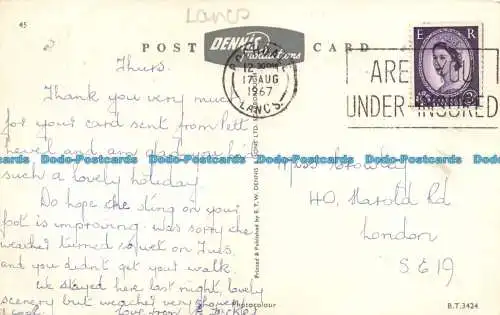 Lancs
45
POST CARD
DENNIS
Productions
12-30PM
17 AUG
1967
LANCS.
E R
ARE YOU
UNDER-INSURED
Thurs.
Thank you very much
for your card sent from Pett
Level and am glad you had
such a lovely holiday
Do hope the sting on your
foot is improving. Was sorry the
weather turned so wet on Tues.
and you didn't get your walk.
We stayed here last night, lovely
scenery but weather very showery
& cool. love from
Miss Crowley
40, Harold Rd
London
S E 19
Printed & Published by E.T.W. DENNIS
Photocolour
B.T.3424
Dodo-Postcards Dodo-Postcards Dodo-Postcards Dodo-Postcards Dodo-Postcards